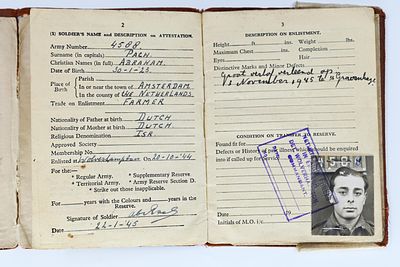 2
(1) SOLDIER'S NAME and DESCRIPTION on ATTESTATION.
Army Number 4588
Surname (in capitals) PACH
Christian Names (in full) ABRAHAM.
Date of Birth 30-1-23.
Place of Birth
Parish
In or near the town of AMSTERDAM
In the county of THE NETHERLANDS
Trade on Enlistment FARMER
Nationality of Father at birth DUTCH
Nationality of Mother at birth DUTCH.
Religious Denomination ISR
Approved Society
Membership No.
Enlisted at Wolverhampton On 20-10-'44
For the:—
* Regular Army. * Supplementary Reserve.
* Territorial Army. * Army Reserve Section D.
* Strike out those inapplicable.
For years with the Colours and years in the Reserve.
Signature of Soldier
Date 22-1-'45
3
DESCRIPTION ON ENLISTMENT.
Height ft. ins. Weight lbs.
Maximum Chest ins. Complexion
Eyes Hair
Distinctive Marks and Minor Defects
Groot verlof verleend op
November 1945 te 's Gravenhage
CONDITION ON TRANSFER TO RESERVE.
Found fit for
Defects or History of past illness which should be enquired
into if called up for Service
Date
Initials of M.O. i/c
4588